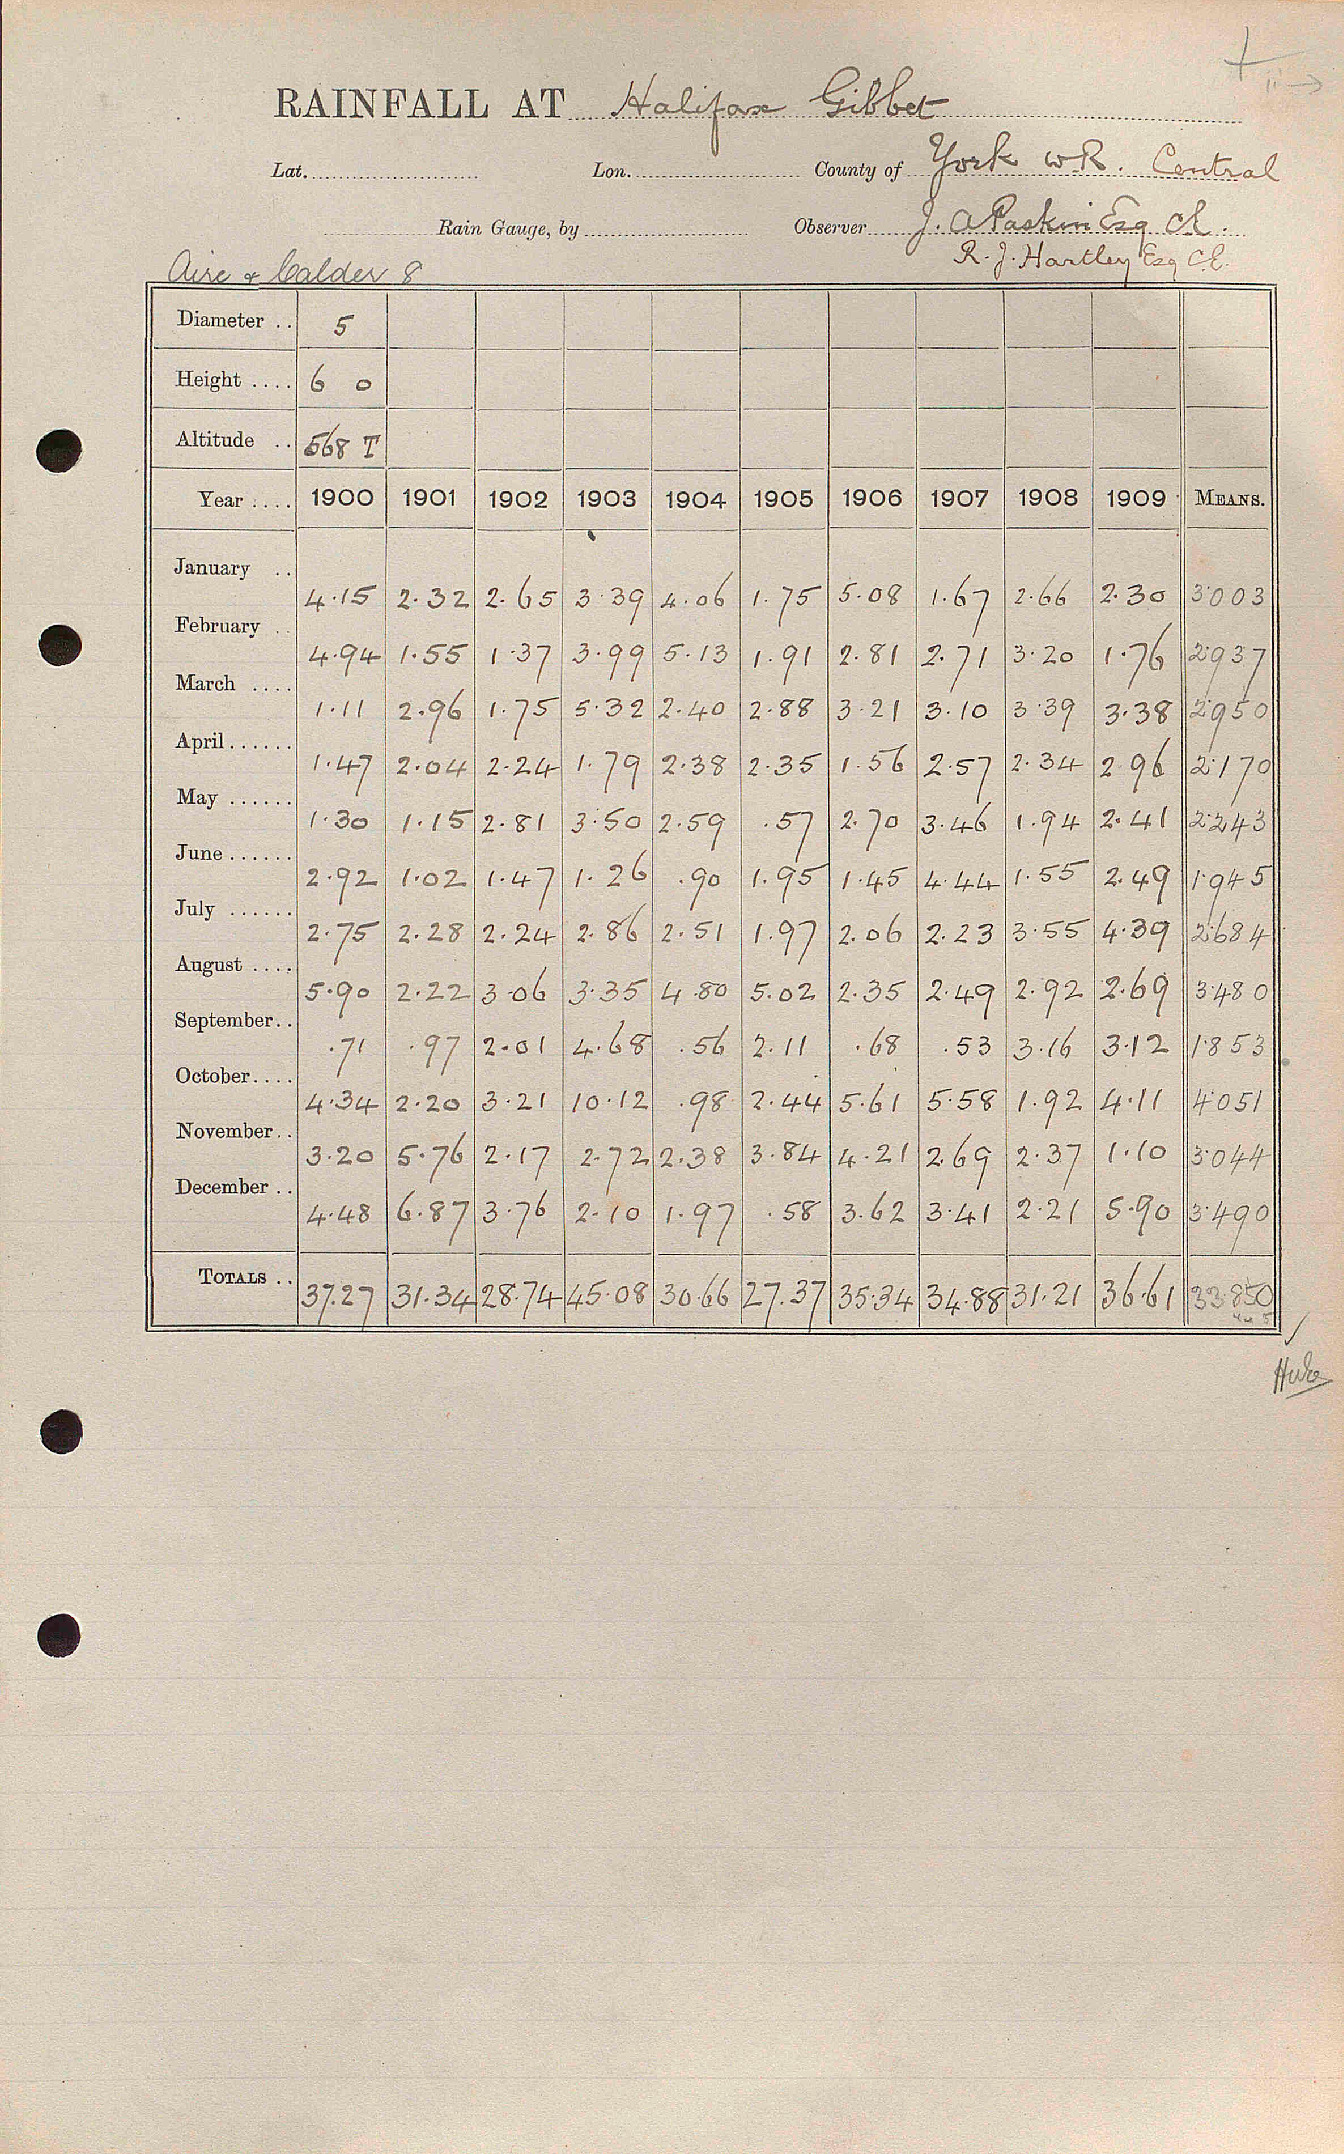 RAINFALL AT Halifax Gibbet
Lat. Lon. County of York W.R. Central
Rain Gauge, by Observer J. A Paskin Esq C.E.
Aire & Calder 8 R. J. Hartley Esq C.E.
Diameter .. 5
Height .... 6 0
Altitude .. 568 T
Year .... 1900 1901 1902 1903 1904 1905 1906 1907 1908 1909 MEANS.
January .. 4.15 2.32 2.65 3.39 4.06 1.75 5.08 1.67 2.66 2.30 3.003
February .. 4.94 1.55 1.37 3.99 5.13 1.91 2.81 2.71 3.20 1.76 2.937
March .... 1.11 2.96 1.75 5.32 2.40 2.88 3.21 3.10 3.39 3.38 2.950
April ...... 1.47 2.04 2.24 1.79 2.38 2.35 1.56 2.57 2.34 2.96 2.170
May ...... 1.30 1.15 2.81 3.50 2.59 .57 2.70 3.46 1.94 2.41 2.243
June ...... 2.92 1.02 1.47 1.26 .90 1.95 1.45 4.44 1.55 2.49 1.945
July ...... 2.75 2.28 2.24 2.86 2.51 1.97 2.06 2.23 3.55 4.39 2.684
August .... 5.90 2.22 3.06 3.35 4.80 5.02 2.35 2.49 2.92 2.69 3.480
September.. .71 .97 2.01 4.68 .56 2.11 .68 .53 3.16 3.12 1.853
October.... 4.34 2.20 3.21 10.12 .98 2.44 5.61 5.58 1.92 4.11 4.051
November.. 3.20 5.76 2.17 2.72 2.38 3.84 4.21 2.69 2.37 1.10 3.044
December .. 4.48 6.87 3.76 2.10 1.97 .58 3.62 3.41 2.21 5.90 3.490
TOTALS .. 37.27 31.34 28.74 45.08 30.66 27.37 35.34 34.88 31.21 36.61 33.850